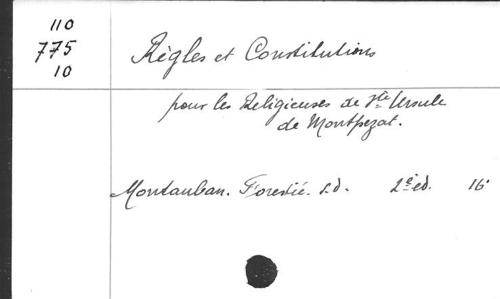 110
775
10
Règles et Constitutions
pour les Religieuses de Ste Ursule
de Montpezat.
Montauban. Forestié. s.d. 2e ed. 16°